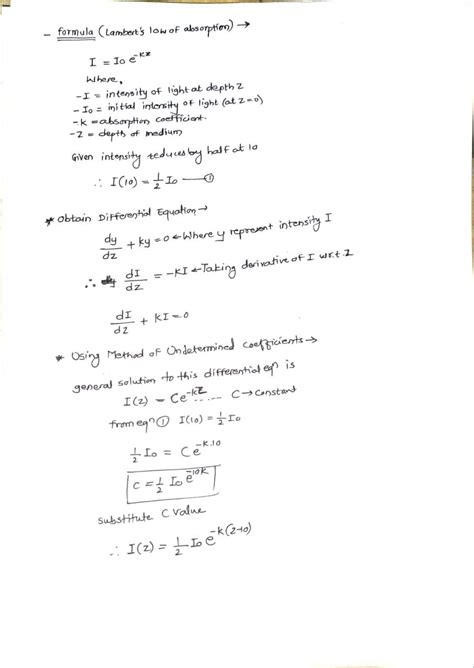 - formula (Lambert's low of absorption) →
I = I₀ e^-kz
Where,
- I = intensity of light at depth z
- I₀ = initial intensity of light (at z=0)
- k = absorption coefficient.
- z = depth of medium
Given intensity reduces by half at 10
∴ I(10) = 1/2 I₀ — ①
* Obtain Differential Equation →
dy/dz + ky = 0 ← Where y represent intensity I
∴ dI/dz = -kI ← Taking derivative of I w.r.t. z
dI/dz + kI = 0
* Using Method of Undetermined Coefficients →
general solution to this differential eqn is
I(z) = Ce^-kz ..... C → Constant
from eqn ① I(10) = 1/2 I₀
1/2 I₀ = Ce^-k.10
C = 1/2 I₀ e^10k
substitute C value
∴ I(z) = 1/2 I₀ e^-k(z-10)